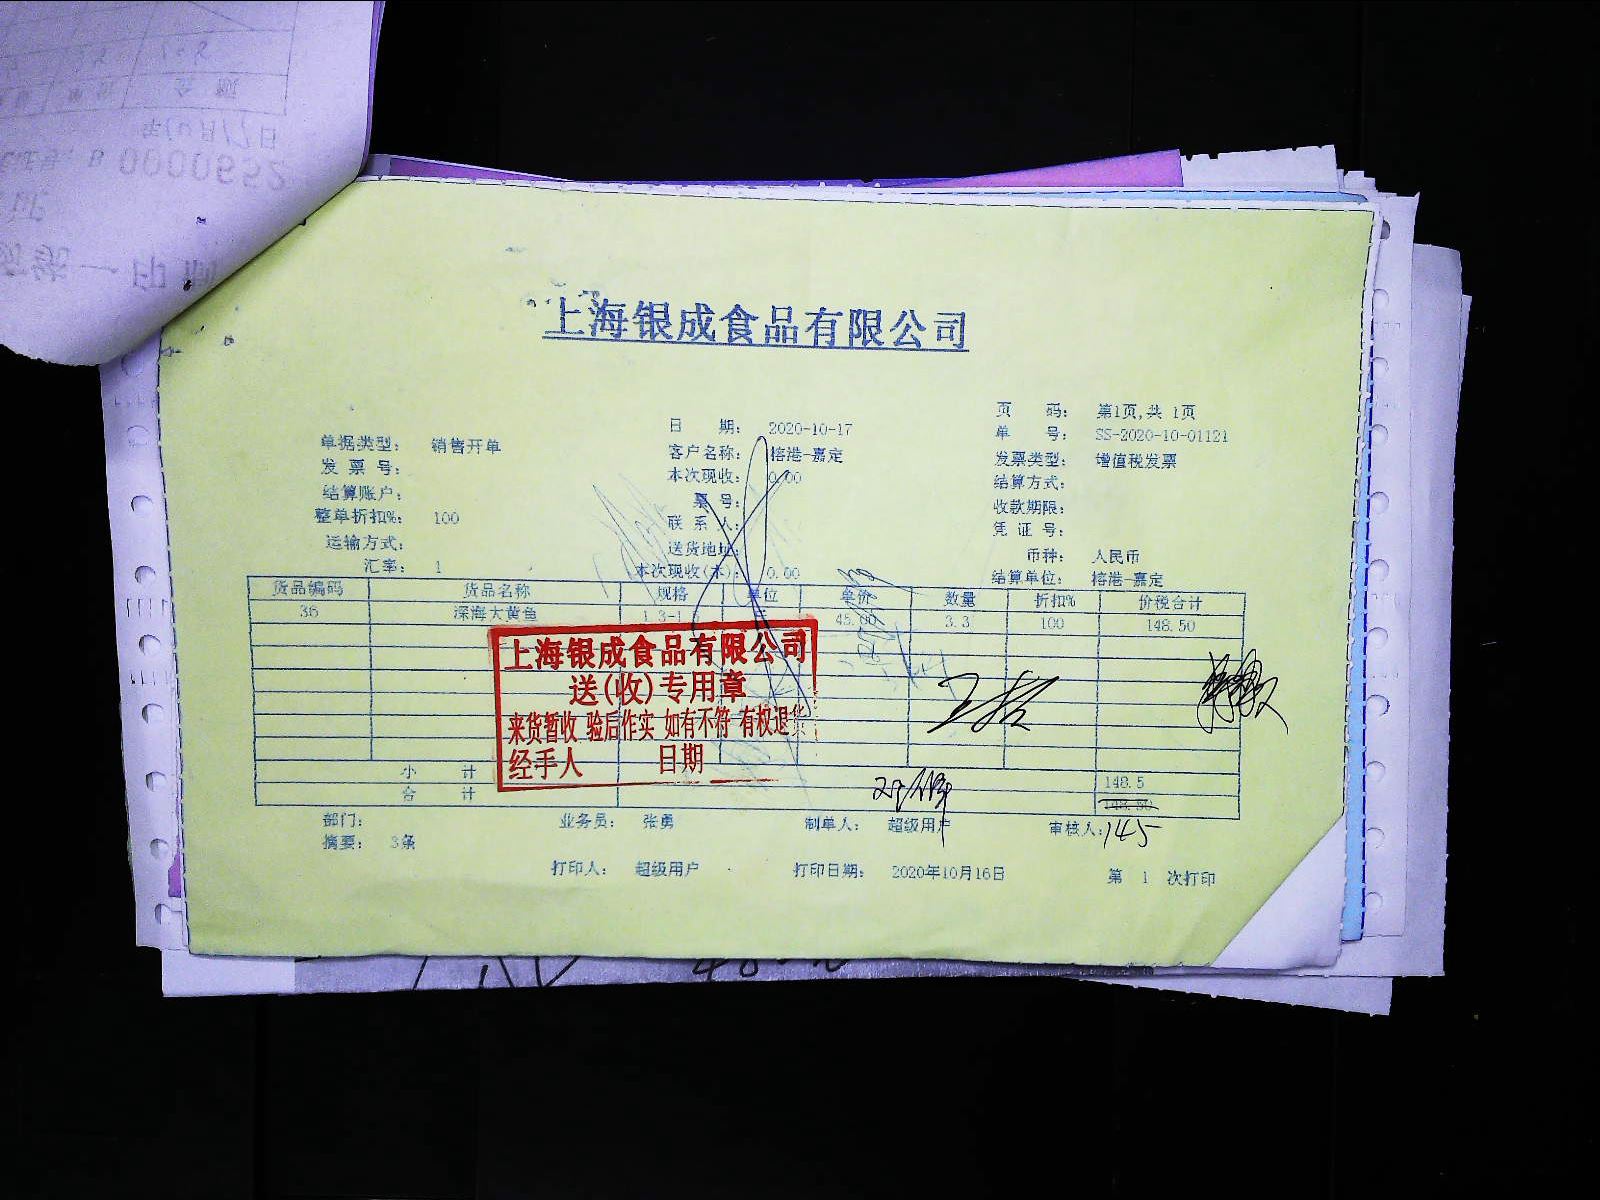 上海银成食品有限公司
页 码： 第1页,共 1页
日 期： 2020-10-17
单 号： SS-2020-10-01121
单据类型： 销售开单
客户名称： 榕港-嘉定
发票类型： 增值税发票
发 票 号：
本次现收： 0.00
结算方式：
结算账户：
票 号：
收款期限：
整单折扣%： 100
联 系 人：
凭 证 号：
运输方式：
送货地址：
币种： 人民币
汇率： 1
本次现收(本)： 0.00
结算单位： 榕港-嘉定
货品编码 货品名称 规格 单位 单价 数量 折扣% 价税合计
36 深海大黄鱼 1.3-1 45.00 3.3 100 148.50
上海银成食品有限公司
送(收)专用章
来货暂收 验后作实 如有不符 有权退货
经手人 日期
小 计 148.5
合 计 148.50
部门： 业务员： 张勇 制单人： 超级用户 审核人： 145
摘要： 3条
打印人： 超级用户 打印日期： 2020年10月16日 第 1 次打印
0000652